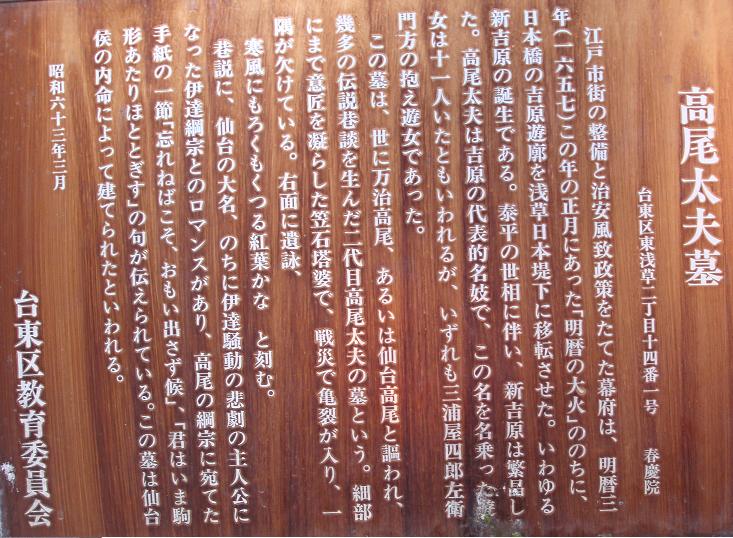 高尾太夫墓
台東区東浅草二丁目十四番一号　春慶院
江戸市街の整備と治安風致政策をたてた幕府は、明暦三
年(一六五七)この年の正月にあった「明暦の大火」ののちに、
日本橋の吉原遊廓を浅草日本堤下に移転させた。いわゆる
新吉原の誕生である。泰平の世相に伴い、新吉原は繁晶し
た。高尾太夫は吉原の代表的名妓で、この名を名乗った遊
女は十一人いたともいわれるが、いずれも三浦屋四郎左衛
門方の抱え遊女であった。
この墓は、世に万治高尾、あるいは仙台高尾と謳われ、
幾多の伝説巷談を生んだ二代目高尾太夫の墓という。細部
にまで意匠を凝らした笠石塔婆で、戦災で亀裂が入り、一
隅が欠けている。右面に遺詠、
寒風にもろくもくつる紅葉かな　と刻む。
巷説に、仙台の大名、のちに伊達騒動の悲劇の主人公に
なった伊達綱宗とのロマンスがあり、高尾の綱宗に宛てた
手紙の一節「忘れねばこそ、おもい出さず候」、「君はいま駒
形あたりほととぎす」の句が伝えられている。この墓は仙台
侯の内命によって建てられたといわれる。
昭和六十三年三月
台東区教育委員会